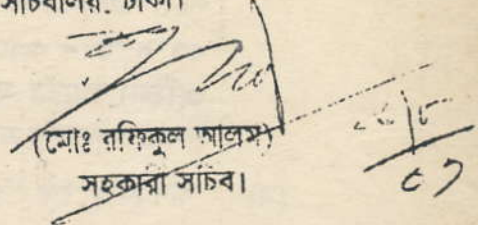 সচিবালয়, ঢাকা।
(মোঃ রফিকুল আলম)
সহকারী সচিব।